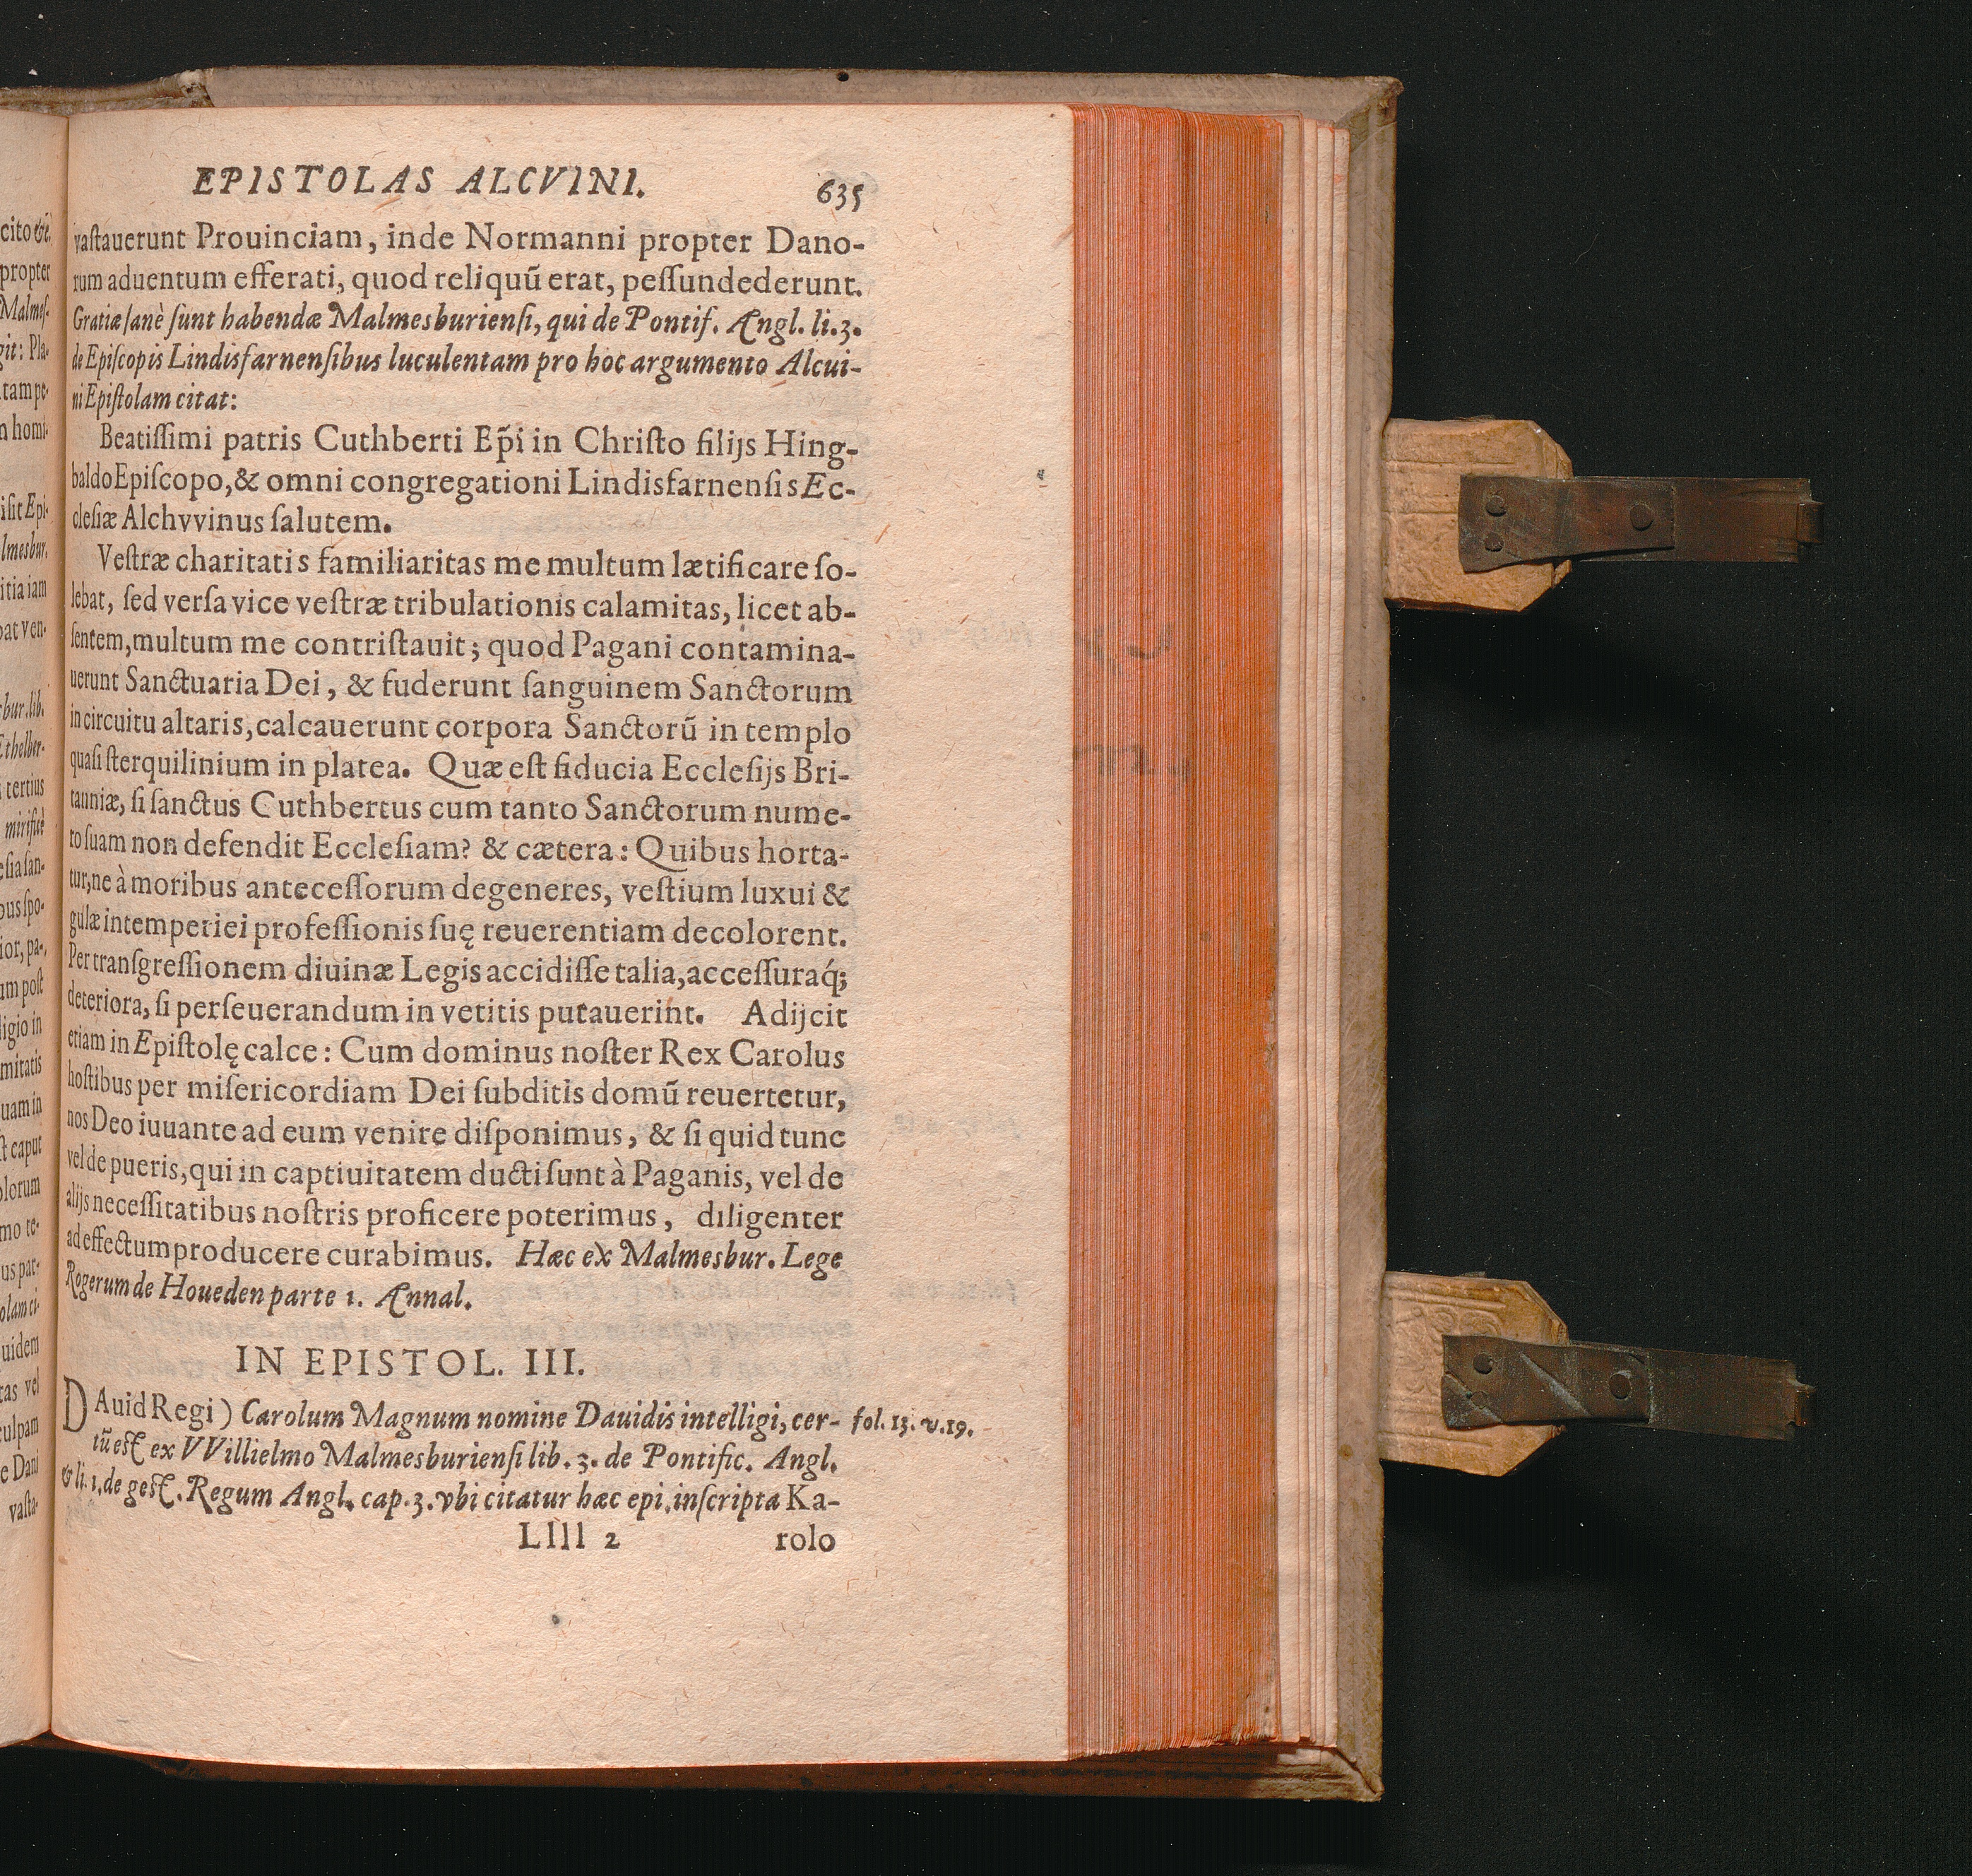 EPISTOLAS ALCVINI. 635
vaſtauerunt Prouinciam, inde Normanni propter Dano-
rum aduentum efferati, quod reliquū erat, peſſundederunt.
Gratiæ ſanè ſunt habendæ Malmesburienſi, qui de Pontif. Angl. li.3.
de Epiſcopis Lindisfarnenſibus luculentam pro hoc argumento Alcui-
ni Epiſtolam citat:
Beatiſſimi patris Cuthberti Ep̃i in Chriſto filijs Hing-
baldo Epiſcopo, & omni congregationi Lindisfarnenſis Ec-
cleſiæ Alchvvinus ſalutem.
Veſtræ charitatis familiaritas me multum lætificare ſo-
lebat, ſed verſa vice veſtræ tribulationis calamitas, licet ab-
ſentem, multum me contriſtauit; quod Pagani contamina-
uerunt Sanctuaria Dei, & fuderunt ſanguinem Sanctorum
in circuitu altaris, calcauerunt corpora Sanctorū in templo
quaſi ſterquilinium in platea. Quæ eſt fiducia Eccleſijs Bri-
tanniæ, ſi ſanctus Cuthbertus cum tanto Sanctorum nume-
ro ſuam non defendit Eccleſiam? & cætera: Quibus horta-
tur, ne à moribus anteceſſorum degeneres, veſtium luxui &
gulæ intemperiei profeſſionis ſuę reuerentiam decolorent.
Per transgreſſionem diuinæ Legis accidiſſe talia, acceſſuraq́;
deteriora, ſi perſeuerandum in vetitis putauerint. Adijcit
etiam in Epiſtolę calce: Cum dominus noſter Rex Carolus
hoſtibus per miſericordiam Dei ſubditis domū reuertetur,
nos Deo iuuante ad eum venire diſponimus, & ſi quid tunc
vel de pueris, qui in captiuitatem ducti ſunt à Paganis, vel de
alijs neceſſitatibus noſtris proficere poterimus, diligenter
ad effectum producere curabimus. Hæc ex Malmesbur. Lege
Rogerum de Houeden parte 1. Annal.
IN EPISTOL. III.
DAuid Regi) Carolum Magnum nomine Dauidis intelligi, cer- fol. 13. v.19.
tū eſt ex VVillielmo Malmesburienſi lib. 3. de Pontific. Angl.
& li. 1. de geſt. Regum Angl. cap. 3. vbi citatur hæc epi. inſcripta Ka-
Llll 2 rolo